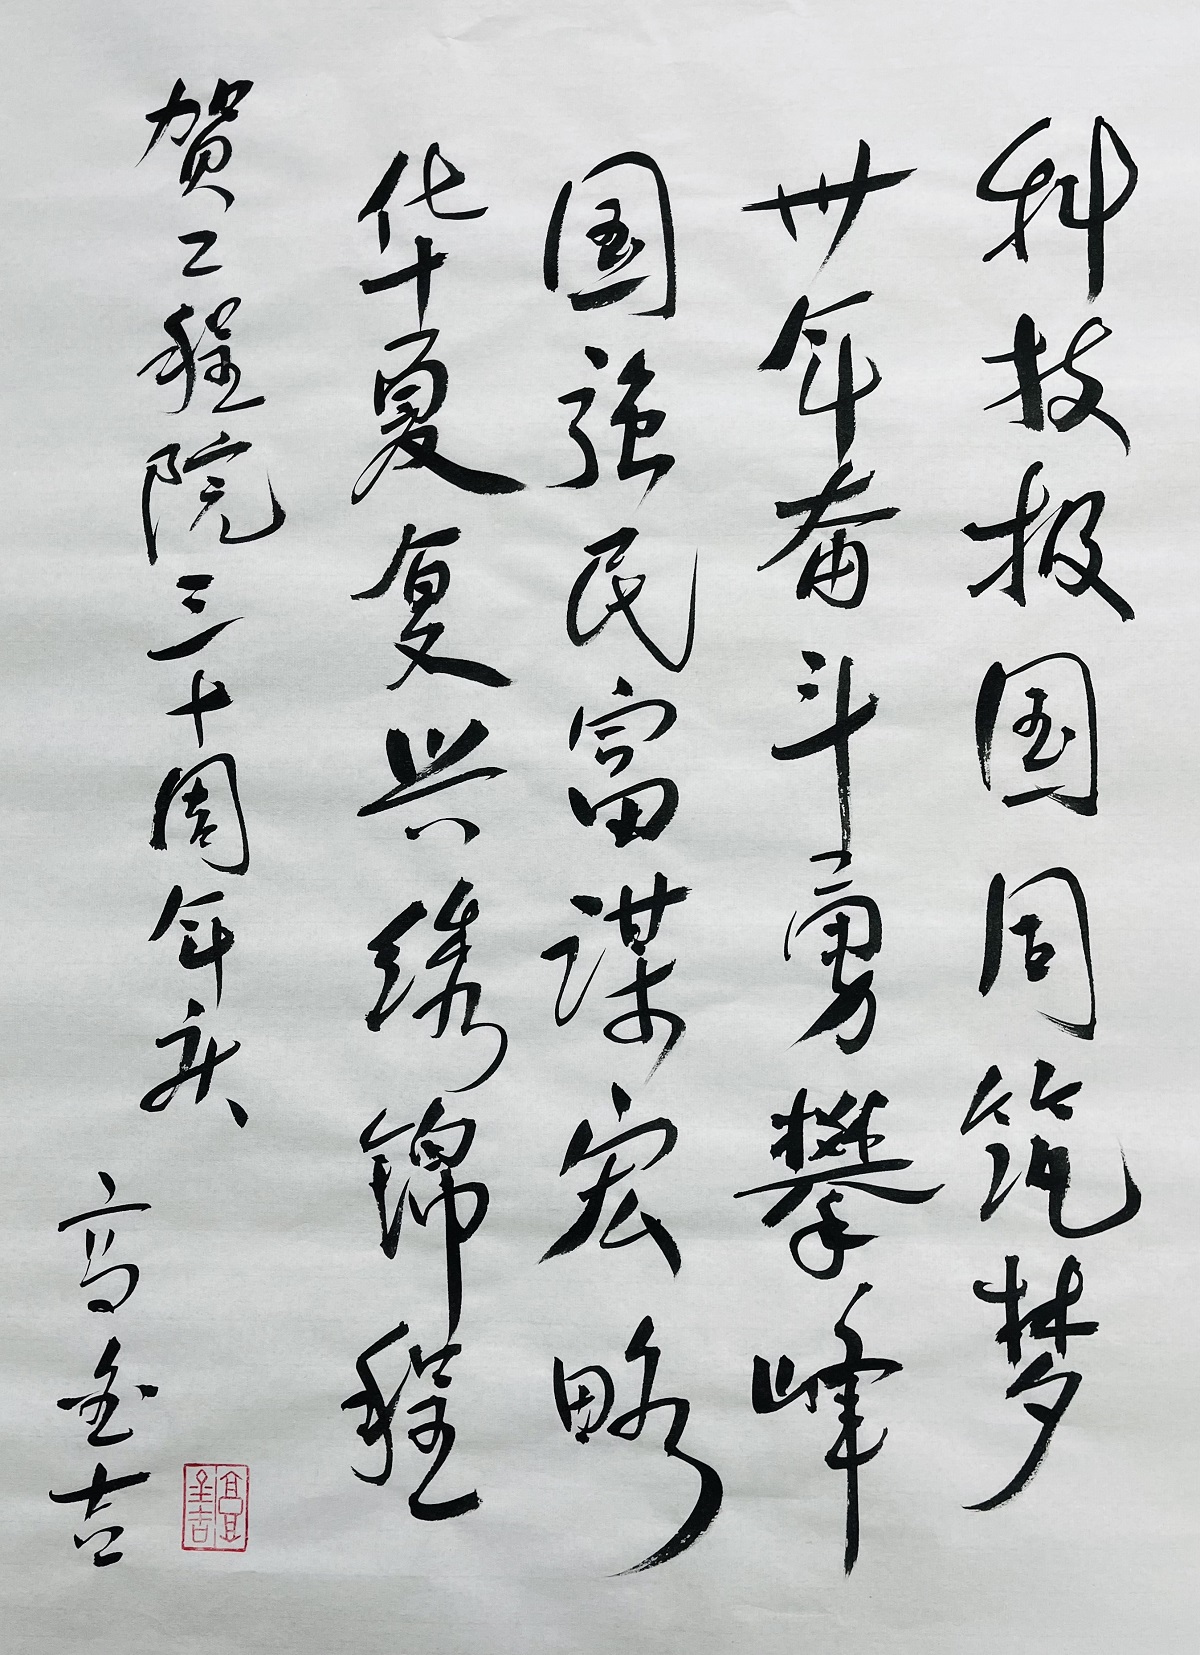 科技报国同筑梦
卅年奋斗勇攀峰
国强民富谋宏略
华夏复兴绣锦程
贺工程院三十周年庆
高金吉
高金吉